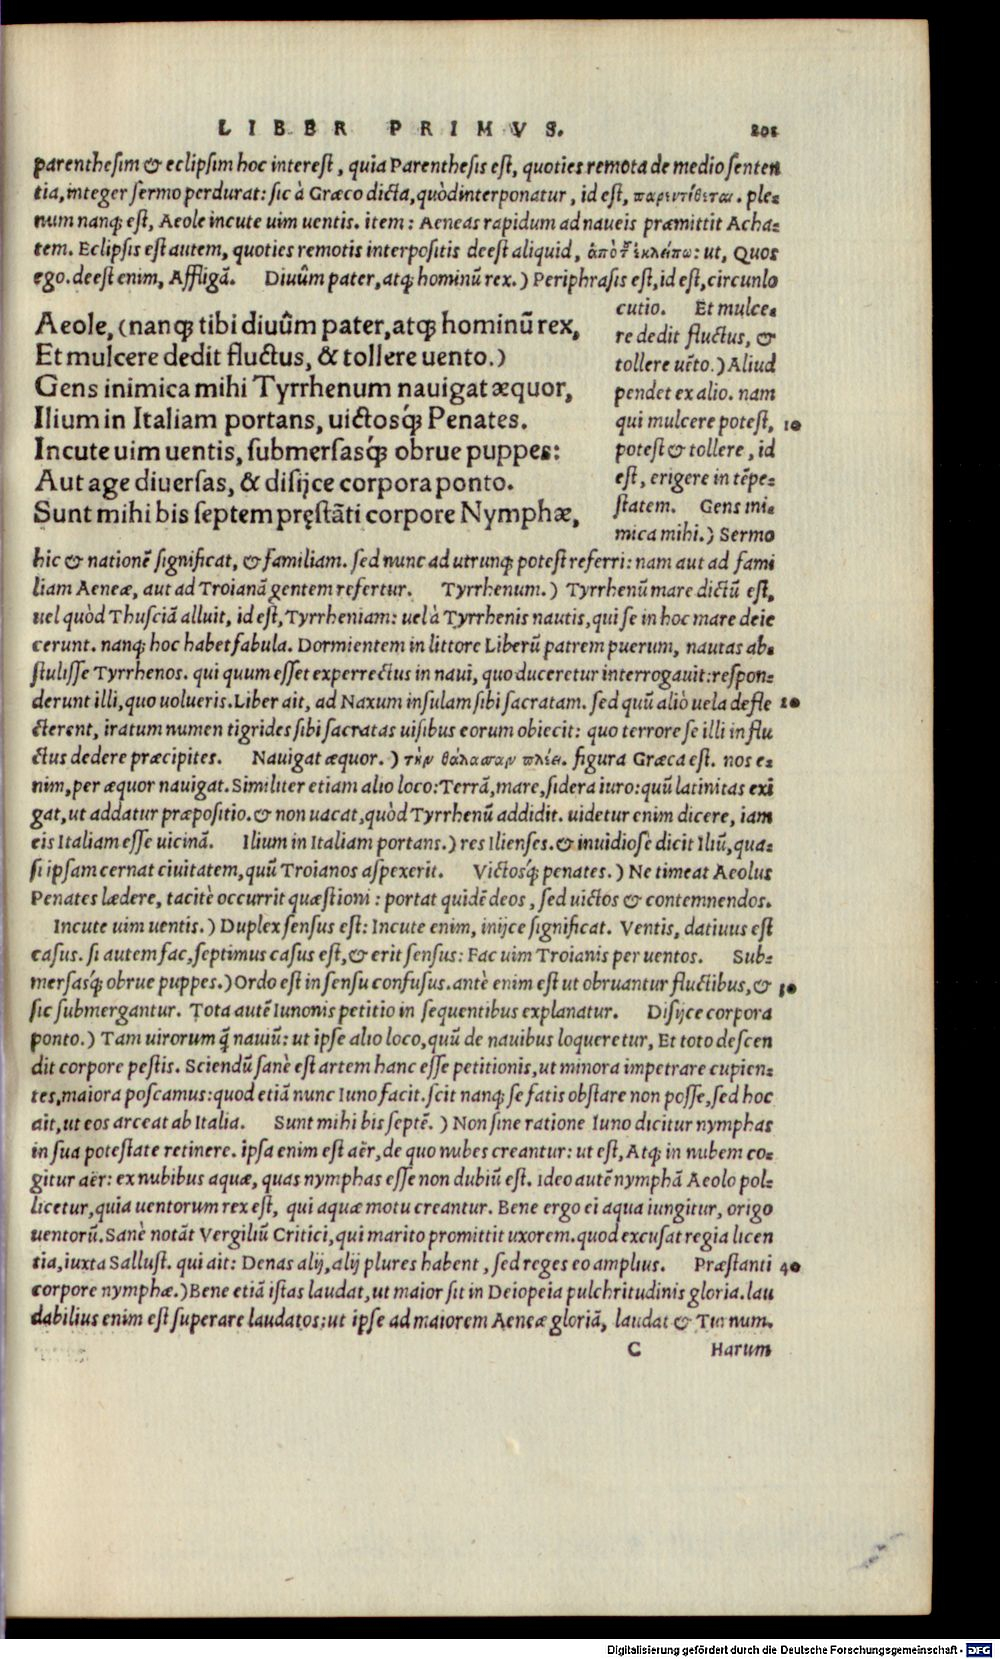 LIBER PRIMVS. 201
parenthesim & eclipsim hoc interest, quia Parenthesis est, quoties remota de medio senten
tia, integer sermo perdurat: sic à Græco dicta, quòd interponatur, id est, παρεντίθεται. ple-
num nanq; est, Aeole incute uim uentis. item: Aeneas rapidum ad naueis præmittit Acha-
tem. Eclipsis est autem, quoties remotis interpositis deest aliquid, ἀπὸ τοῦ ἐκλείπω: ut, Quos
ego. deest enim, Affligā. Diuûm pater, atq; hominū rex.) Periphrasis est, id est, circunlo
cutio. Et mulce-
re dedit fluctus, &
tollere uēto.) Aliud
pendet ex alio. nam
qui mulcere potest, 10
potest & tollere, id
est, erigere in tēpe-
statem. Gens ini-
mica mihi.) Sermo
Aeole, (nanq; tibi diuûm pater, atq; hominū rex,
Et mulcere dedit fluctus, & tollere uento.)
Gens inimica mihi Tyrrhenum nauigat æquor,
Ilium in Italiam portans, uictosq́; Penates.
Incute uim uentis, submersasq́; obrue puppes:
Aut age diuersas, & disijce corpora ponto.
Sunt mihi bis septem pręstāti corpore Nymphæ,
hic & nationē significat, & familiam. sed nunc ad utrunq; potest referri: nam aut ad fami
liam Aeneæ, aut ad Troianā gentem refertur. Tyrrhenum.) Tyrrhenū mare dictū est,
uel quòd Thusciā alluit, id est, Tyrrheniam: uel à Tyrrhenis nautis, qui se in hoc mare deie
cerunt. nanq; hoc habet fabula. Dormientem in littore Liberū patrem puerum, nautas ab-
stulisse Tyrrhenos. qui quum esset experrectus in naui, quo duceretur interrogauit: respon-
derunt illi, quo uolueris. Liber ait, ad Naxum insulam sibi sacratam. sed quū aliò uela defle 20
cterent, iratum numen tigrides sibi sacratas uisibus eorum obiecit: quo terrore se illi in flu
ctus dedere præcipites. Nauigat æquor.) τὴν θάλασσαν πλέει. figura Græca est. nos e-
nim, per æquor nauigat. Similiter etiam alio loco: Terrā, mare, sidera iuro: quū latinitas exi
gat, ut addatur præpositio. & non uacat, quòd Tyrrhenū addidit. uidetur enim dicere, iam
eis Italiam esse uicinā. Ilium in Italiam portans.) res Ilienses. & inuidiosè dicit Iliū, qua-
si ipsam cernat ciuitatem, quū Troianos aspexerit. Victosq́; penates.) Ne timeat Aeolus
Penates lædere, tacitè occurrit quæstioni: portat quidē deos, sed uictos & contemnendos.
Incute uim uentis.) Duplex sensus est: Incute enim, inijce significat. Ventis, datiuus est
casus. si autem fac, septimus casus est, & erit sensus: Fac uim Troianis per uentos. Sub-
mersasq́; obrue puppes.) Ordo est in sensu confusus. antè enim est ut obruantur fluctibus, & 30
sic submergantur. Tota autē Iunonis petitio in sequentibus explanatur. Disijce corpora
ponto.) Tam uirorum q̄ nauiū: ut ipse alio loco, quū de nauibus loqueretur, Et toto descen
dit corpore pestis. Sciendū sanè est artem hanc esse petitionis, ut minora impetrare cupien-
tes, maiora poscamus: quod etiā nunc Iuno facit. scit nanq; se fatis obstare non posse, sed hoc
ait, ut eos arceat ab Italia. Sunt mihi bis septē.) Non sine ratione Iuno dicitur nymphas
in sua potestate retinere. ipsa enim est aër, de quo nubes creantur: ut est, Atq; in nubem co-
gitur aër: ex nubibus aquæ, quas nymphas esse non dubiū est. Ideo autē nymphā Aeolo pol-
licetur, quia uentorum rex est, qui aquæ motu creantur. Bene ergo ei aqua iungitur, origo
uentorū. Sanè notāt Vergiliū Critici, qui marito promittit uxorem. quod excusat regia licen
tia, iuxta Sallust. qui ait: Denas alij, alij plures habent, sed reges eo amplius. Præstanti 40
corpore nymphæ.) Bene etiā istas laudat, ut maior sit in Deiopeia pulchritudinis gloria. lau
dabilius enim est superare laudatos: ut ipse ad maiorem Aeneæ gloriā, laudat & Turnum.
C Harum
Digitalisierung gefördert durch die Deutsche Forschungsgemeinschaft - DFG